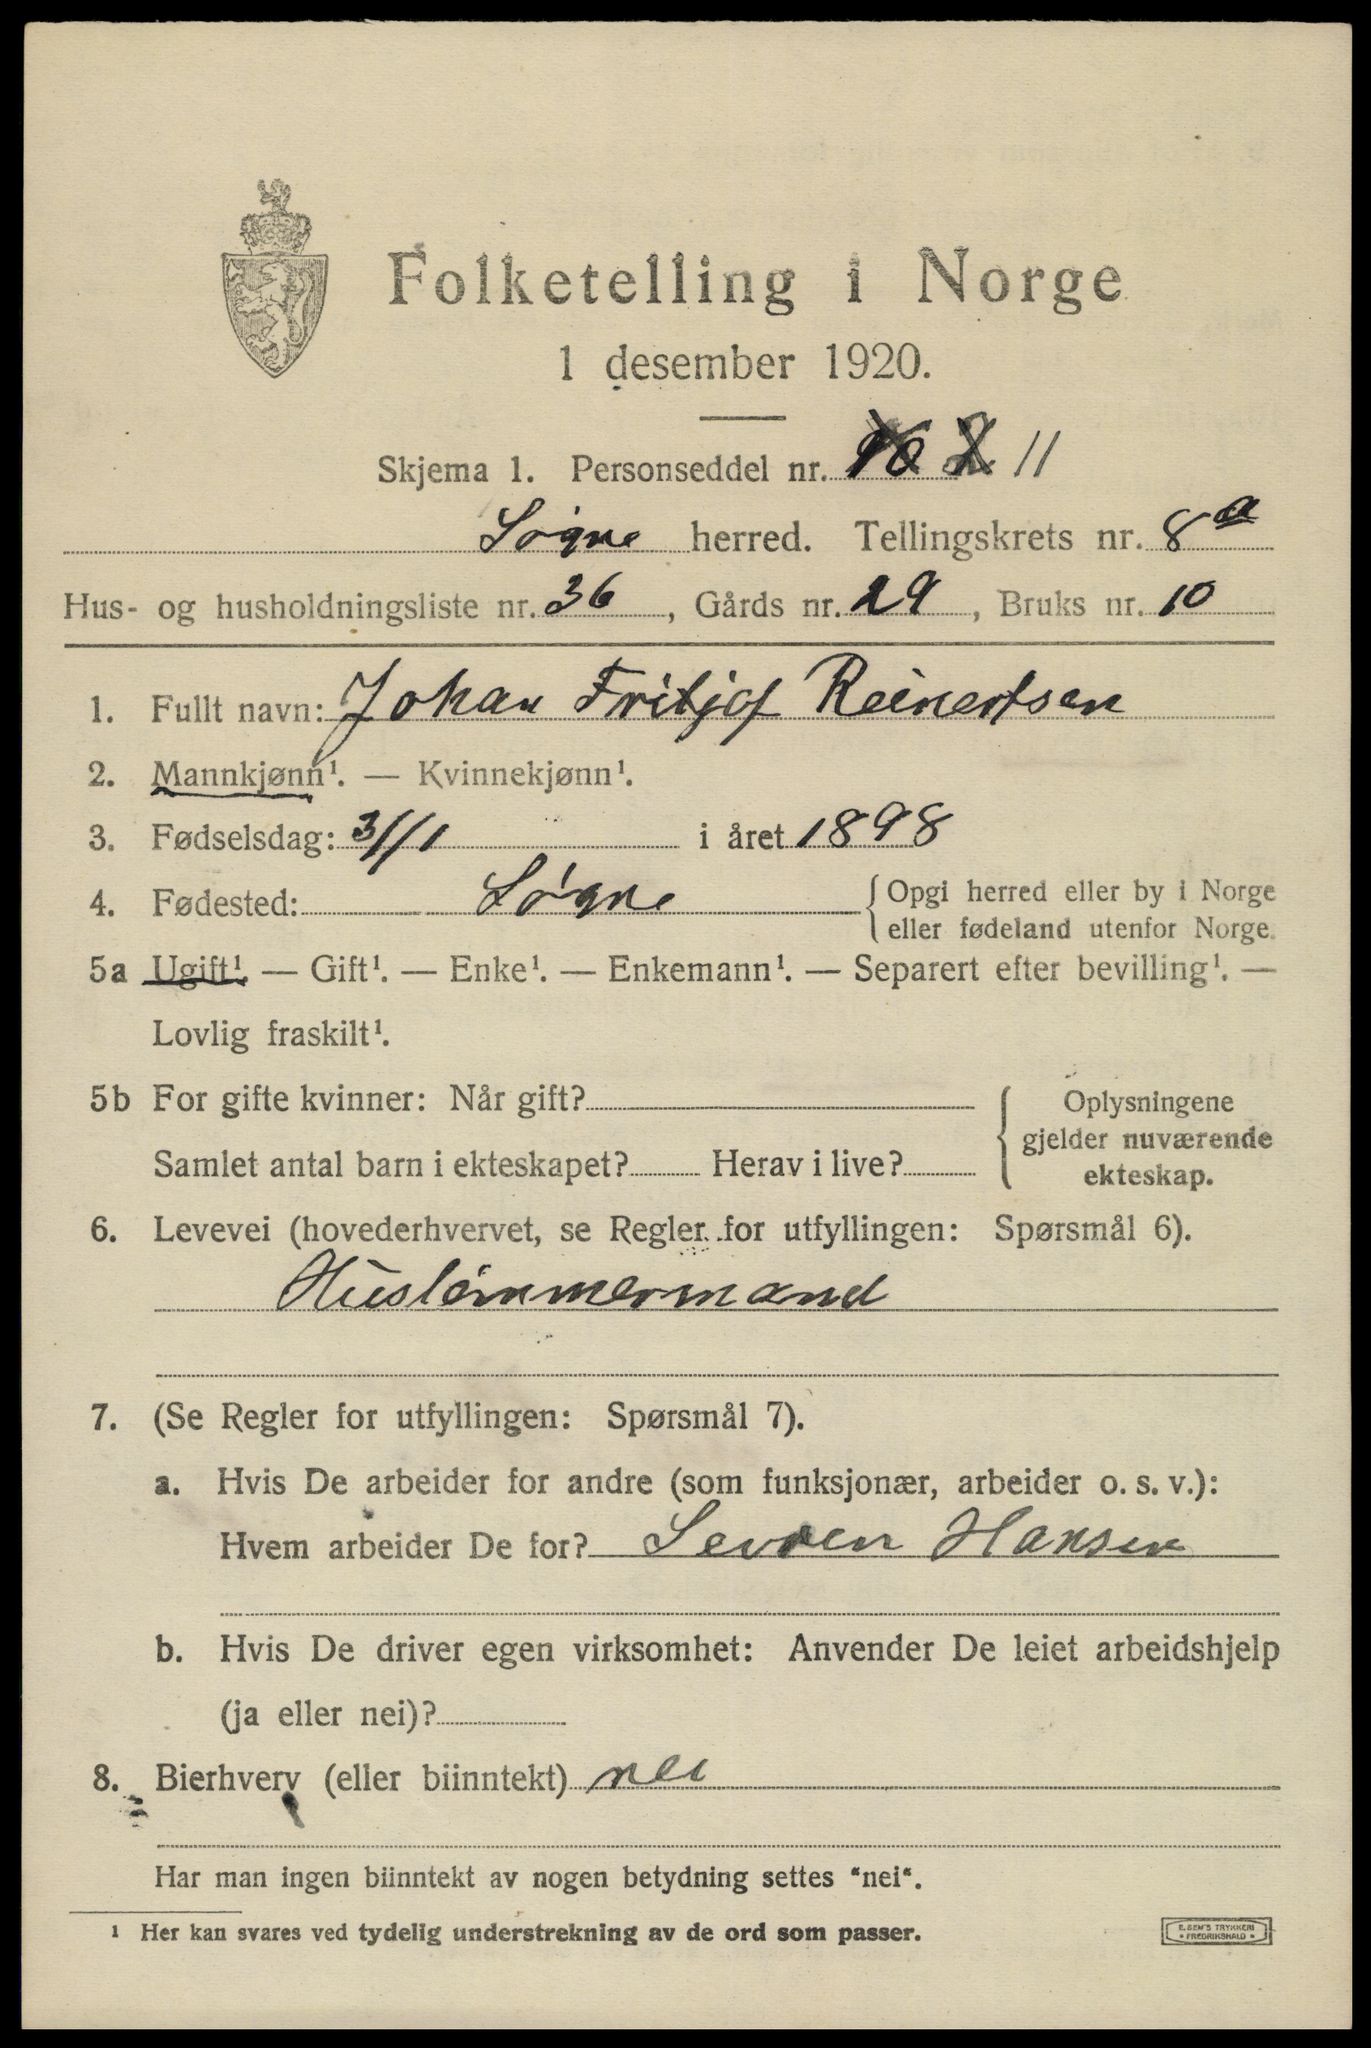 Folketelling i Norge
1 desember 1920.
Skjema 1. Personseddel nr. 10 2 11
Søgne herred. Tellingskrets nr. 8a
Hus- og husholdningsliste nr. 36, Gårds nr. 29, Bruks nr. 10
1. Fullt navn: Johan Fritjof Reinertsen
2. Mannkjønn¹. — Kvinnekjønn¹.
3. Fødselsdag: 3/1 i året 1898
4. Fødested: Søgne {Opgi herred eller by i Norge
eller fødeland utenfor Norge.
5a Ugift¹ — Gift¹. — Enke¹. — Enkemann¹. — Separert efter bevilling¹. —
Lovlig fraskilt¹.
5b For gifte kvinner: Når gift?
Samlet antal barn i ekteskapet? Herav i live?
{Oplysningene
gjelder nuværende
ekteskap.
6. Levevei (hovederhvervet, se Regler for utfyllingen: Spørsmål 6).
Hustømmermand
7. (Se Regler for utfyllingen: Spørsmål 7).
a. Hvis De arbeider for andre (som funksjonær, arbeider o. s. v.):
Hvem arbeider De for? Hansen
b. Hvis De driver egen virksomhet: Anvender De leiet arbeidshjelp
(ja eller nei)?
8. Bierhverv (eller biinntekt) nei
Har man ingen biinntekt av nogen betydning settes "nei".
¹ Her kan svares ved tydelig understrekning av de ord som passer.
E. SEM'S TRYKKERI
• FREDRIKSHALD •